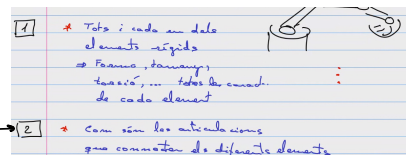 1 * Tots i cada un dels
elements rígids
⇒ Forma, tamany,
torsió, ... totes les caract.
de cada element
→ 2 * Com són les articulacions
que connecten els diferents elements